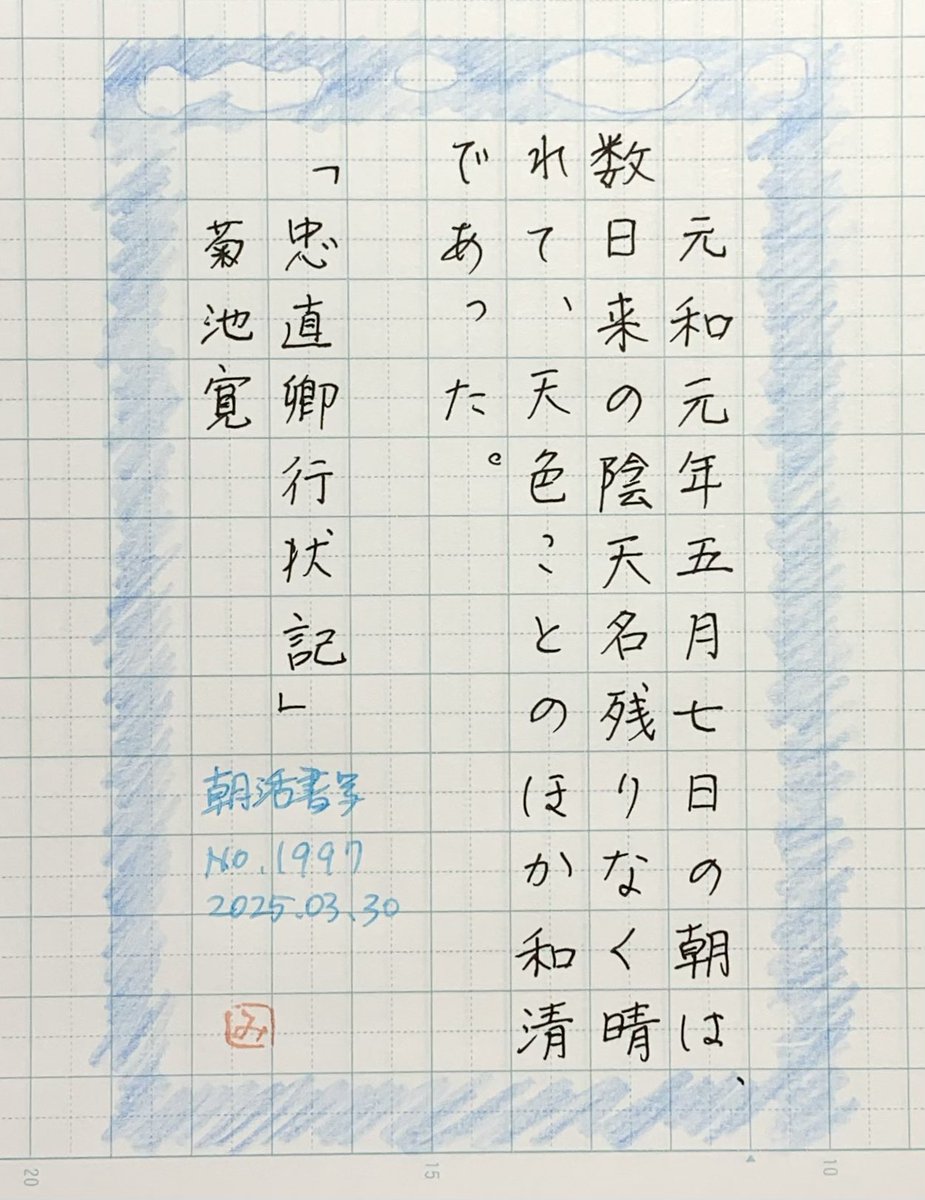 元和元年五月七日の朝は、
数日来の陰天名残りなく晴
れて、天色ことのほか和清
であった。
「忠直卿行状記」
菊池寛
朝活書写
No.1997
2025.03.30
み
20
15
10